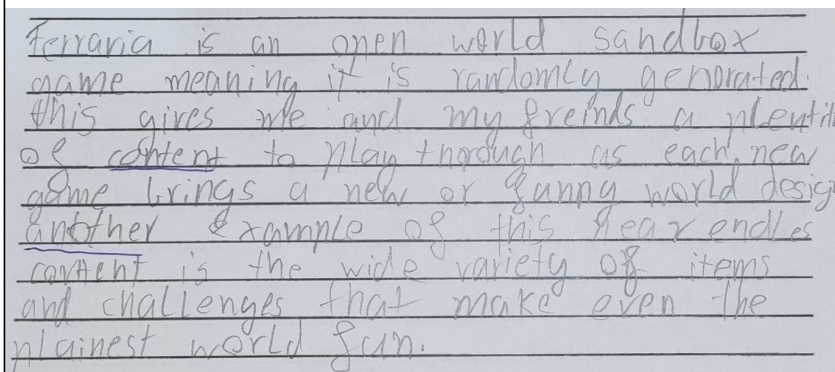 Terraria is an open world sandbox
game meaning it is randomly genorated.
this gives me and my freinds a plentit
of content to play thorough as each new
game brings a new or funny world desig
another example of this near endles
content is the wide variety of items
and challenges that make even the
plainest world fun.